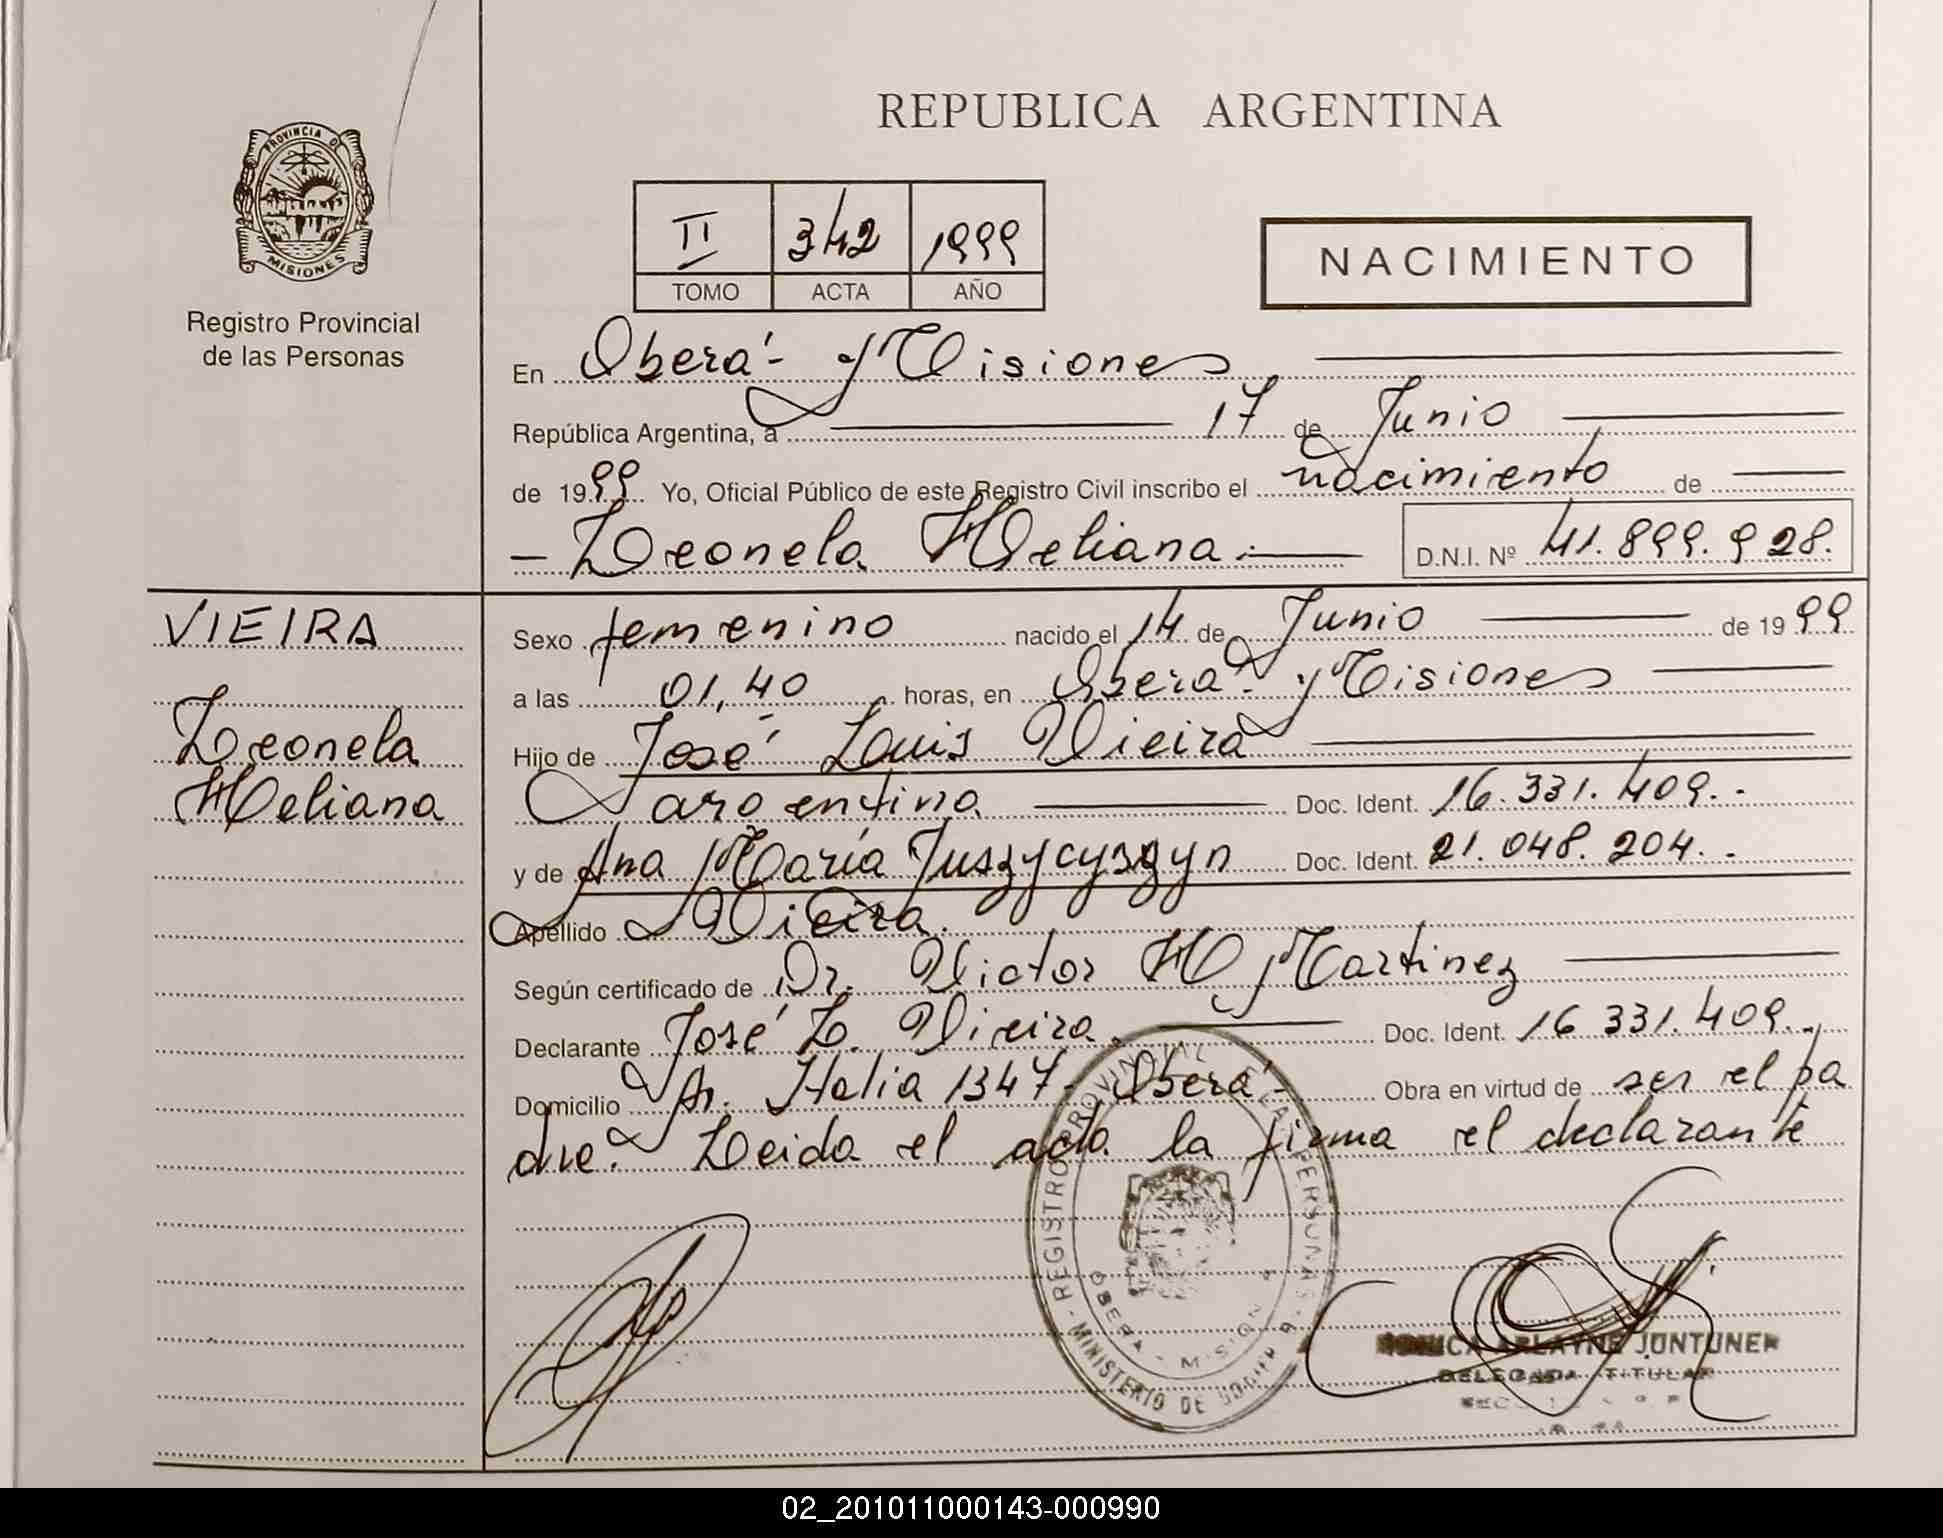 PROVINCIA D
MISIONES
Registro Provincial
de las Personas
REPUBLICA ARGENTINA
II 342 1999
TOMO ACTA AÑO
NACIMIENTO
En Oberá - Misiones
República Argentina, a 17 de Junio
de 1999 Yo, Oficial Público de este Registro Civil inscribo el nacimiento de
- Leonela Heliana.- D.N.I. Nº 41.899.928.
VIEIRA
Leonela
Heliana
Sexo femenino nacido el 14 de Junio de 1999
a las 01,40 horas, en Oberá - Misiones
Hijo de José Luis Vieira
argentina Doc. Ident. 16.331.409.-
y de Ana María Juszycyszyn Doc. Ident. 21.048.204.-
Apellido Vieira.
Según certificado de Dr. Victor H Martinez
Declarante José L. Vieira. Doc. Ident. 16 331.409.-
Domicilio Av. Italia 1347- Oberá- Obra en virtud de ser el pa
dre. Leida el acta la firma el declarante
REGISTRO PROVINCIAL DE LAS PERSONAS
OBERA - MISIONES
MINISTERIO DE GOBIERNO
ARLAYNE JUNTUNEN
DELEGADA TITULAR
02_201011000143-000990